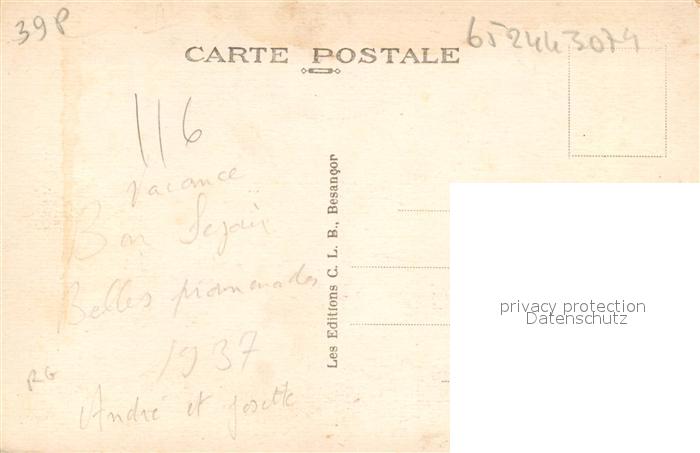 39P
CARTE POSTALE
652443074
116
vacance
Bon Sejour
Belles promenades
1937
André et Josette
RG
Les Editions C. L. B., Besançor
privacy protection
Datenschutz